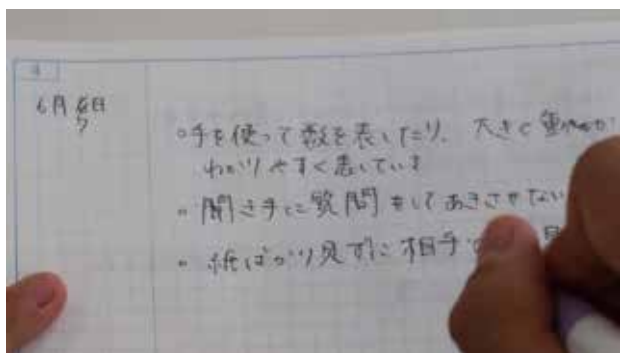 6月
日
○手を使って数を表したり、大きく動
わかりやすく表している
○聞き手に質問をしてあきさせない
○紙ばかり見ずに相手
見